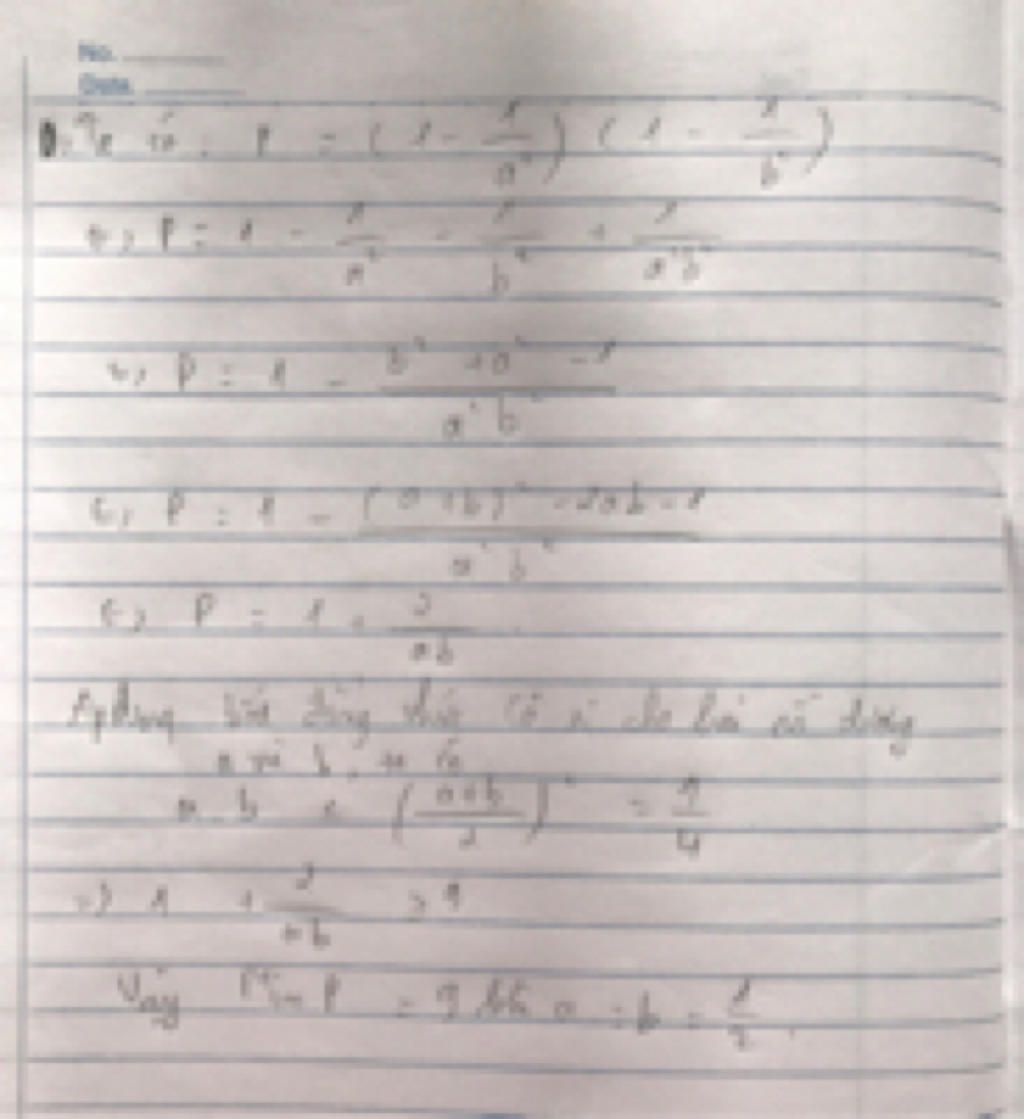 No.
Date
Ta có: P = (1 - 1/a²) (1 - 1/b²)
<=> P = 1 - 1/a² - 1/b² + 1/a²b²
<=> P = 1 - (b² + a² - 1)/a²b²
<=> P = 1 - ((a+b)² - 2ab - 1)/a²b²
<=> P = 1 + 2/ab
Áp dụng bất đẳng thức cô si cho hai số dương
a và b, ta có
a.b ≤ ((a+b)/2)² = 1/4
=> 1 + 2/ab ≥ 9
Vậy Min P = 9 khi a = b = 1/2.